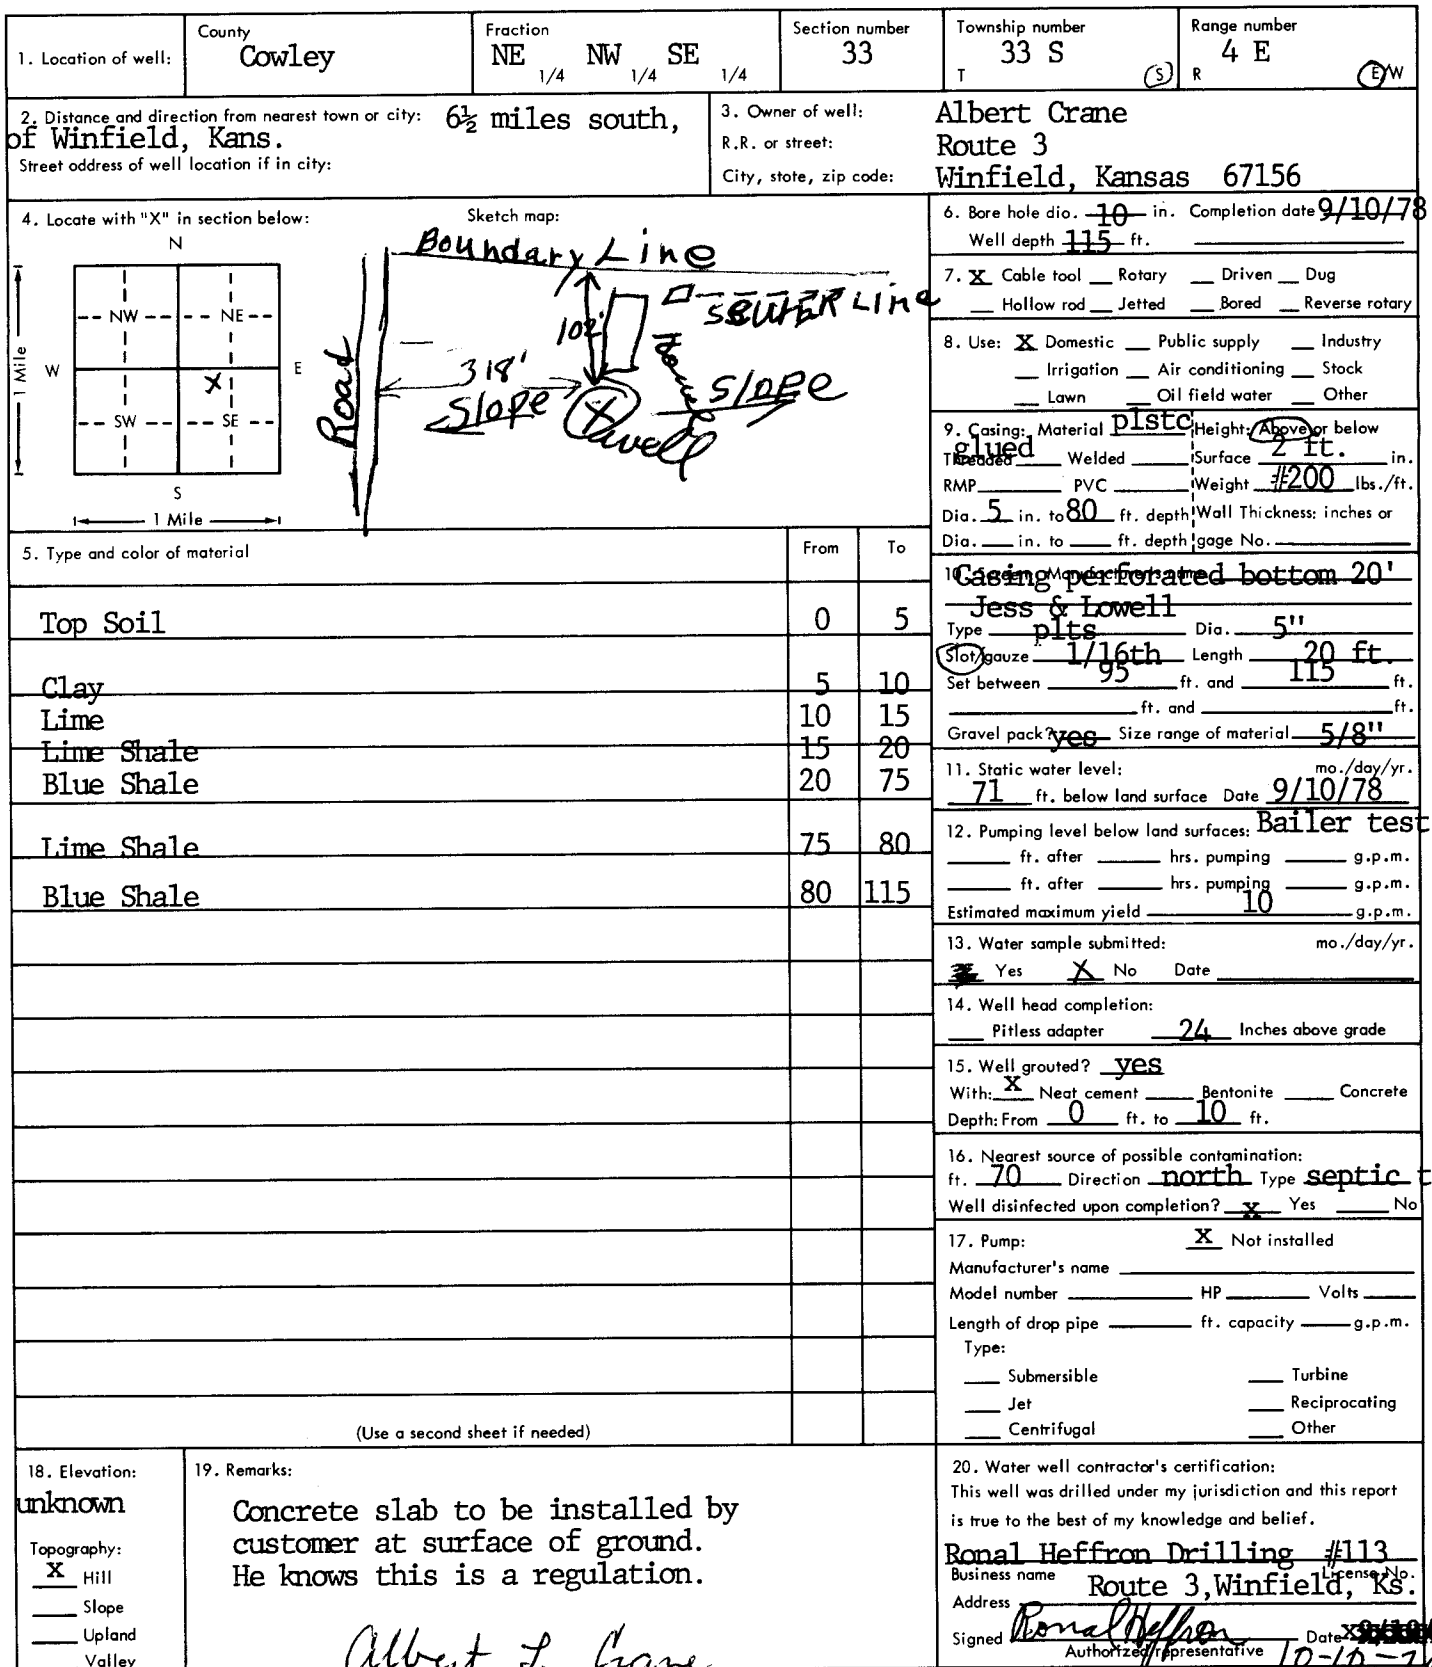 1. Location of well:
County
Cowley
Fraction
NE 1/4 NW 1/4 SE 1/4
Section number
33
Township number
33 S
T (S)
Range number
4 E
R E/W
2. Distance and direction from nearest town or city: 6½ miles south,
of Winfield, Kans.
Street address of well location if in city:
3. Owner of well: Albert Crane
R.R. or street: Route 3
City, state, zip code: Winfield, Kansas 67156
4. Locate with "X" in section below:
N
NW NE
W E
X
SW SE
S
1 Mile
1 Mile
Sketch map:
Boundary Line
SEWER LINE
102'
House
318'
Slope
Slope
Road
X
well
5. Type and color of material From To
Top Soil 0 5
Clay 5 10
Lime 10 15
Lime Shale 15 20
Blue Shale 20 75
Lime Shale 75 80
Blue Shale 80 115
(Use a second sheet if needed)
6. Bore hole dia. 10 in. Completion date 9/10/78
Well depth 115 ft.
7. X Cable tool Rotary Driven Dug
Hollow rod Jetted Bored Reverse rotary
8. Use: X Domestic Public supply Industry
Irrigation Air conditioning Stock
Lawn Oil field water Other
9. Casing: Material plstc Height: Above or below
glued
Threaded Welded Surface 2 ft. in.
RMP PVC Weight #200 lbs./ft.
Dia. 5 in. to 80 ft. depth Wall Thickness: inches or
Dia. in. to ft. depth gage No.
10. Screen: Manufacturer's name
Casing perforated bottom 20'
Jess & Lowell
Type plts Dia. 5"
Slot/gauze 1/16th Length 20 ft.
Set between 95 ft. and 115 ft.
ft. and ft.
Gravel pack? yes Size range of material 5/8"
11. Static water level: mo./day/yr.
71 ft. below land surface Date 9/10/78
12. Pumping level below land surfaces: Bailer test
ft. after hrs. pumping g.p.m.
ft. after hrs. pumping g.p.m.
Estimated maximum yield 10 g.p.m.
13. Water sample submitted: mo./day/yr.
Yes X No Date
14. Well head completion:
Pitless adapter 24 Inches above grade
15. Well grouted? yes
With: X Neat cement Bentonite Concrete
Depth: From 0 ft. to 10 ft.
16. Nearest source of possible contamination:
ft. 70 Direction north Type septic t
Well disinfected upon completion? x Yes No
17. Pump: X Not installed
Manufacturer's name
Model number HP Volts
Length of drop pipe ft. capacity g.p.m.
Type:
Submersible Turbine
Jet Reciprocating
Centrifugal Other
18. Elevation:
unknown
Topography:
X Hill
Slope
Upland
Valley
19. Remarks:
Concrete slab to be installed by
customer at surface of ground.
He knows this is a regulation.
Albert L. Crane
20. Water well contractor's certification:
This well was drilled under my jurisdiction and this report
is true to the best of my knowledge and belief.
Ronal Heffron Drilling #113
Business name License No.
Address Route 3, Winfield, Ks.
Signed Ronal Heffron Date
Authorized representative